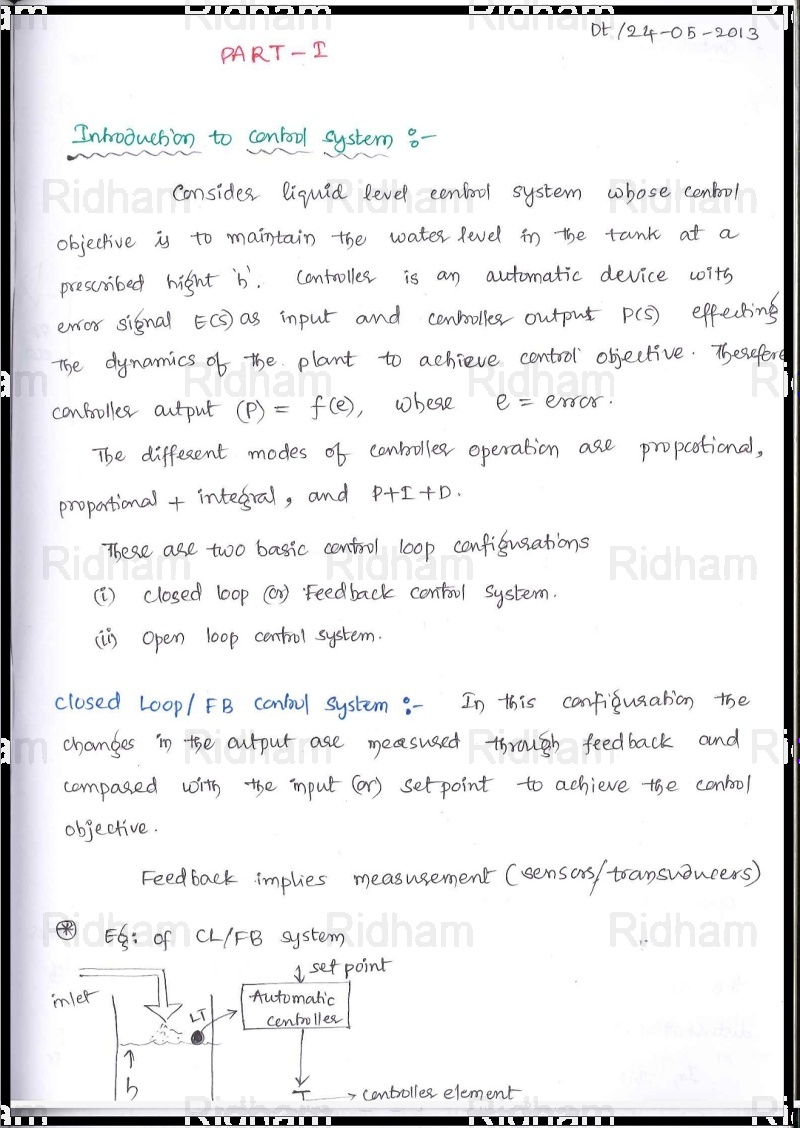 Dt/24-05-2013
PART-I
Introduction to control system :-
Consider liquid level control system whose control
objective is to maintain the water level in the tank at a
prescribed hight 'h'. Controller is an automatic device with
error signal E(S) as input and controller output P(S) effecting
The dynamics of the plant to achieve control objective. Therefore
controller output (P) = f(e), where e = error.
The different modes of controller operation are proportional,
proportional + integral, and P+I+D.
There are two basic control loop configurations
(i) closed loop (or) Feedback control system.
(ii) open loop control system.
closed Loop/FB control system :- In this configuration the
changes in the output are measured through feedback and
compared with the input (or) set point to achieve the control
objective.
Feedback implies measurement (sensors/transuducers)
* Eg: of CL/FB system
set point
inlet
LT
Automatic
controller
h
controller element
Ridham